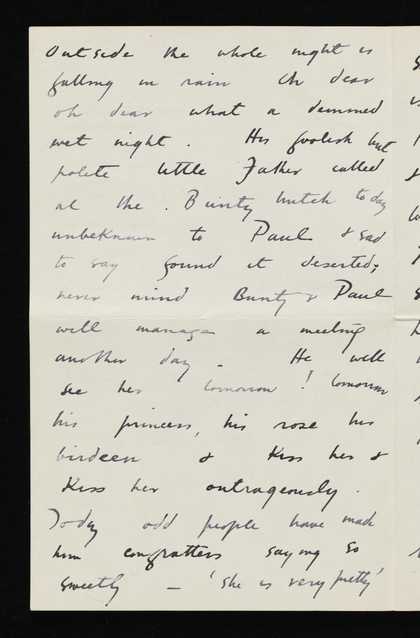 Outside the whole night is
falling in rain Oh dear
oh dear what a demmed
wet night. His foolish but
polite little Father called
at the . Bunty hutch today
unbeknown to Paul & sad
to say found it deserted;
never mind Bunty & Paul
will manage a meeting
another day – He will
see her tomorrow! tomorrow
his princess, his rose his
birdeen & kiss her &
kiss her outrageously.
Today odd people have made
him congratters saying so
sweetly – 'she is very pretty'